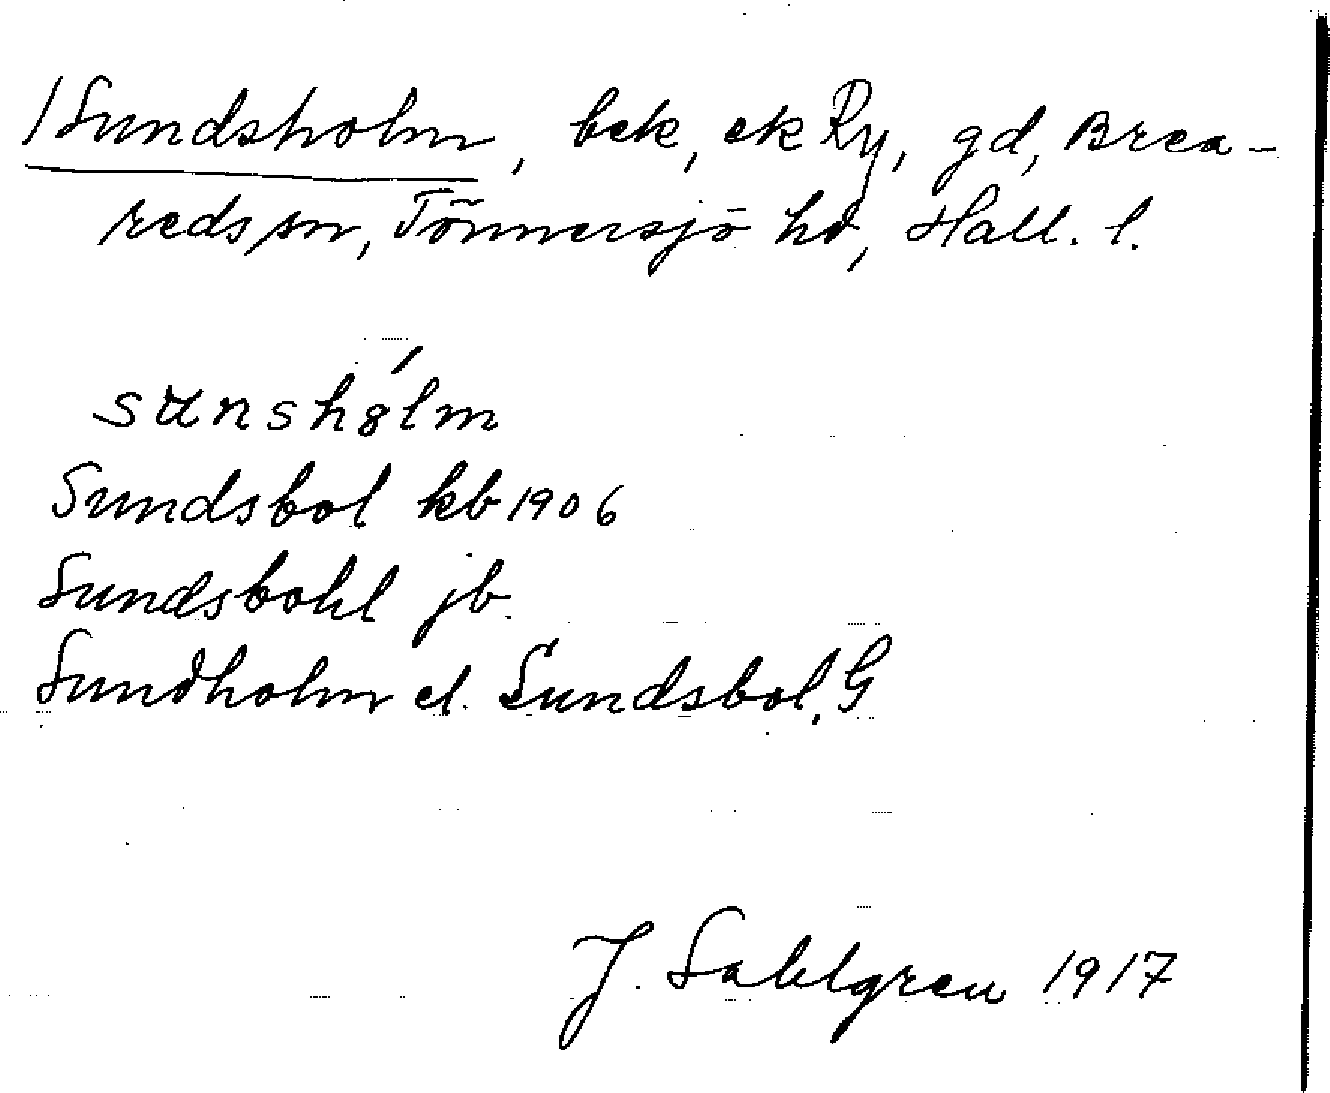 /Sundsholm, bck, ck Ry, gd, Brea-
reds sn, Tönnersjö hd, Hall. l.
sunshólm
Sundsbol kb 1906
Sundsbohl jb
Sundholm el. Sundsbol, G
J. Sahlgren 1917